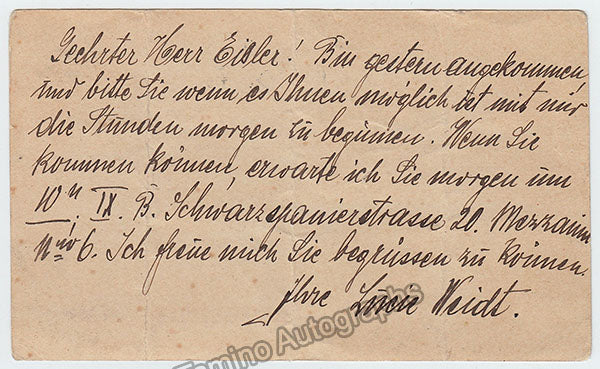 Geehrter Herr Eisler! Bin gestern angekommen
und bitte Sie wenn es Ihnen möglich ist mit mir
die Stunden morgen zu beginnen. Wenn Sie
kommen können, erwarte ich Sie morgen um
10 IX. B. Schwarzspanierstrasse 20. Mezzanin
6. Ich freue mich Sie begrüssen zu können.
Ihre Lucie Weidt.
Tamino Autographs